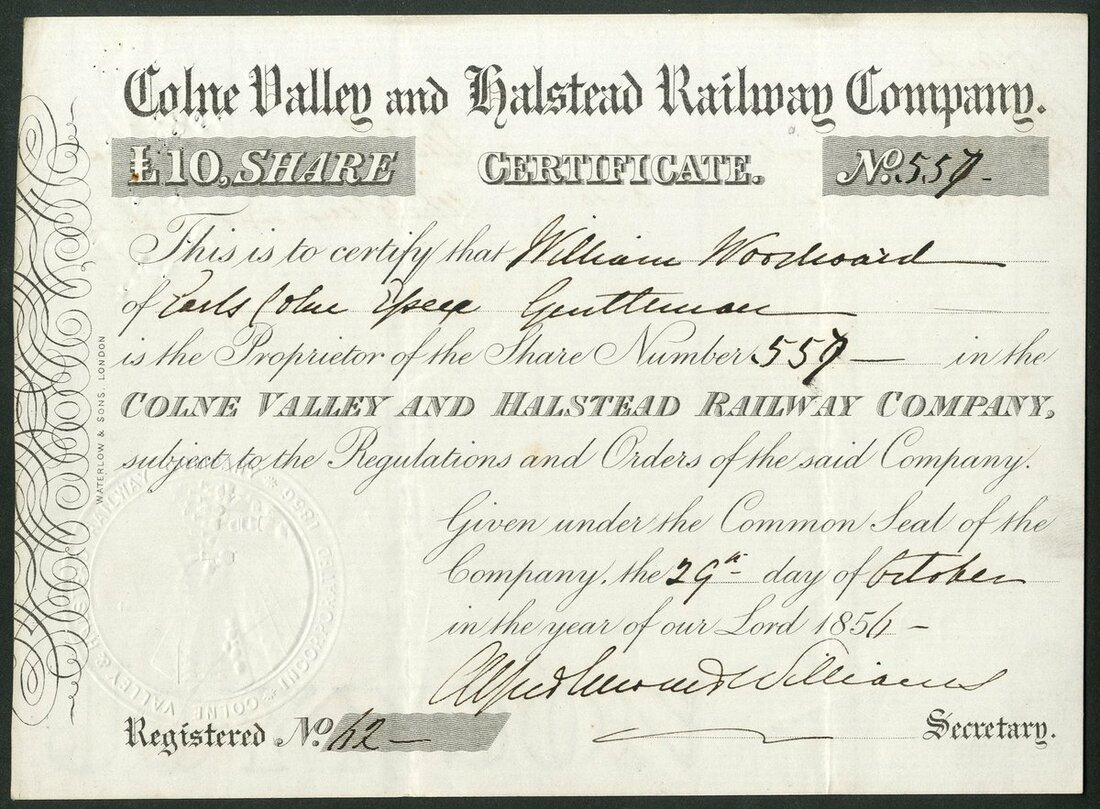 Colne Valley and Halstead Railway Company.
£10, SHARE CERTIFICATE. No. 557-
This is to certify that William Woodward
of Earls Colne Essex Gentleman
is the Proprietor of the Share Number 557 in the
COLNE VALLEY AND HALSTEAD RAILWAY COMPANY,
subject to the Regulations and Orders of the said Company.
Given under the Common Seal of the
Company, the 29th day of October
in the year of our Lord 1856
Alfred Williams
Registered No. 62 Secretary.
WATERLOW & SONS, LONDON
COLNE VALLEY & RAILWAY INCORPORATED 1856